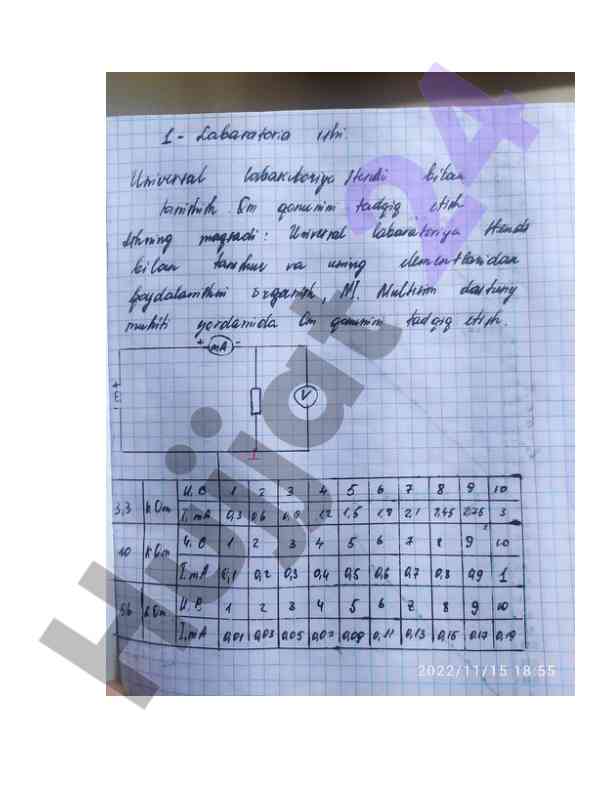 1 - Labaratoria ishi.
Universal labaratoriya stendi bilan
tanishish Om qonunini tadqiq etish
Ishning maqsadi: Universal labaratoriya stendi
bilan tanshuv va uning elementlaridan
foydalanishni o'rganish, NI. Multisim dasturiy
muhiti yordamida Om qonunini tadqiq etish.
+ mA -
E
V
1
3,3 kOm U. B 1 2 3 4 5 6 7 8 9 10
I, mA 0,3 0,6 0,9 1,2 1,5 1,8 2,1 2,45 2,75 3
10 kOm U. B 1 2 3 4 5 6 7 8 9 10
I, mA 0,1 0,2 0,3 0,4 0,5 0,6 0,7 0,8 0,9 1
56 kOm U. B 1 2 3 4 5 6 7 8 9 10
I, mA 0,01 0,03 0,05 0,07 0,09 0,11 0,13 0,15 0,17 0,19
2022/11/15 18:55
Hujjat 24